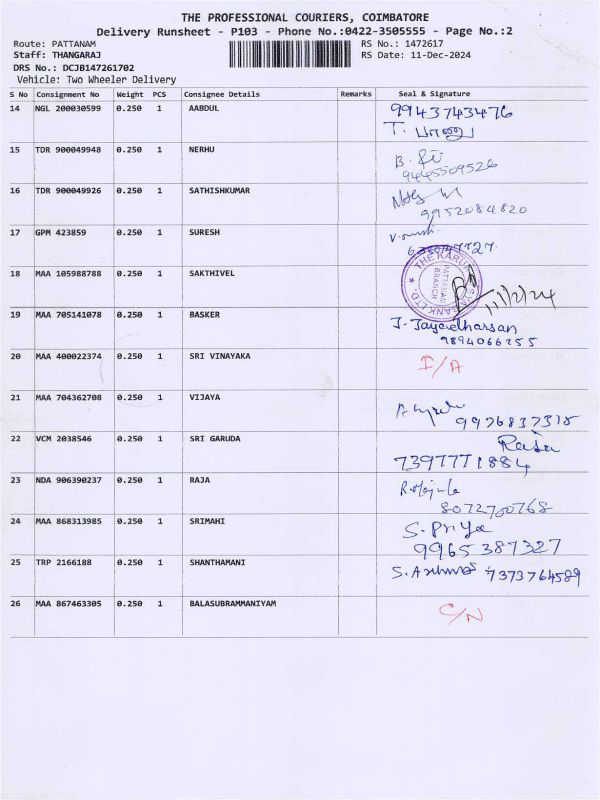 THE PROFESSIONAL COURIERS, COIMBATORE
Delivery Runsheet - P103 - Phone No.:0422-3505555 - Page No.:2
Route: PATTANAM RS No.: 1472617
Staff: THANGARAJ RS Date: 11-Dec-2024
DRS No.: DCJB147261702
Vehicle: Two Wheeler Delivery
S No Consignment No Weight PCS Consignee Details Remarks Seal & Signature
14 NGL 200030599 0.250 1 AABDUL 9943743476
T. பானு
15 TDR 900049948 0.250 1 NERHU B.
9445509526
16 TDR 900049926 0.250 1 SATHISHKUMAR
9952084820
17 GPM 423859 0.250 1 SURESH
18 MAA 105988788 0.250 1 SAKTHIVEL THE KARUR VYSYA BANK LTD. PATTANAM BRANCH
11/12/24
19 MAA 705141078 0.250 1 BASKER J. Jayadharsan
9894066255
20 MAA 400022374 0.250 1 SRI VINAYAKA I/A
21 MAA 704362708 0.250 1 VIJAYA
9976837318
22 VCM 2038546 0.250 1 SRI GARUDA Raja
7397771884
23 NDA 906390237 0.250 1 RAJA
8072700768
24 MAA 868313985 0.250 1 SRIMAHI S. Priya
9965387327
25 TRP 2166188 0.250 1 SHANTHAMANI 7373764589
26 MAA 867463305 0.250 1 BALASUBRAMMANIYAM C/N